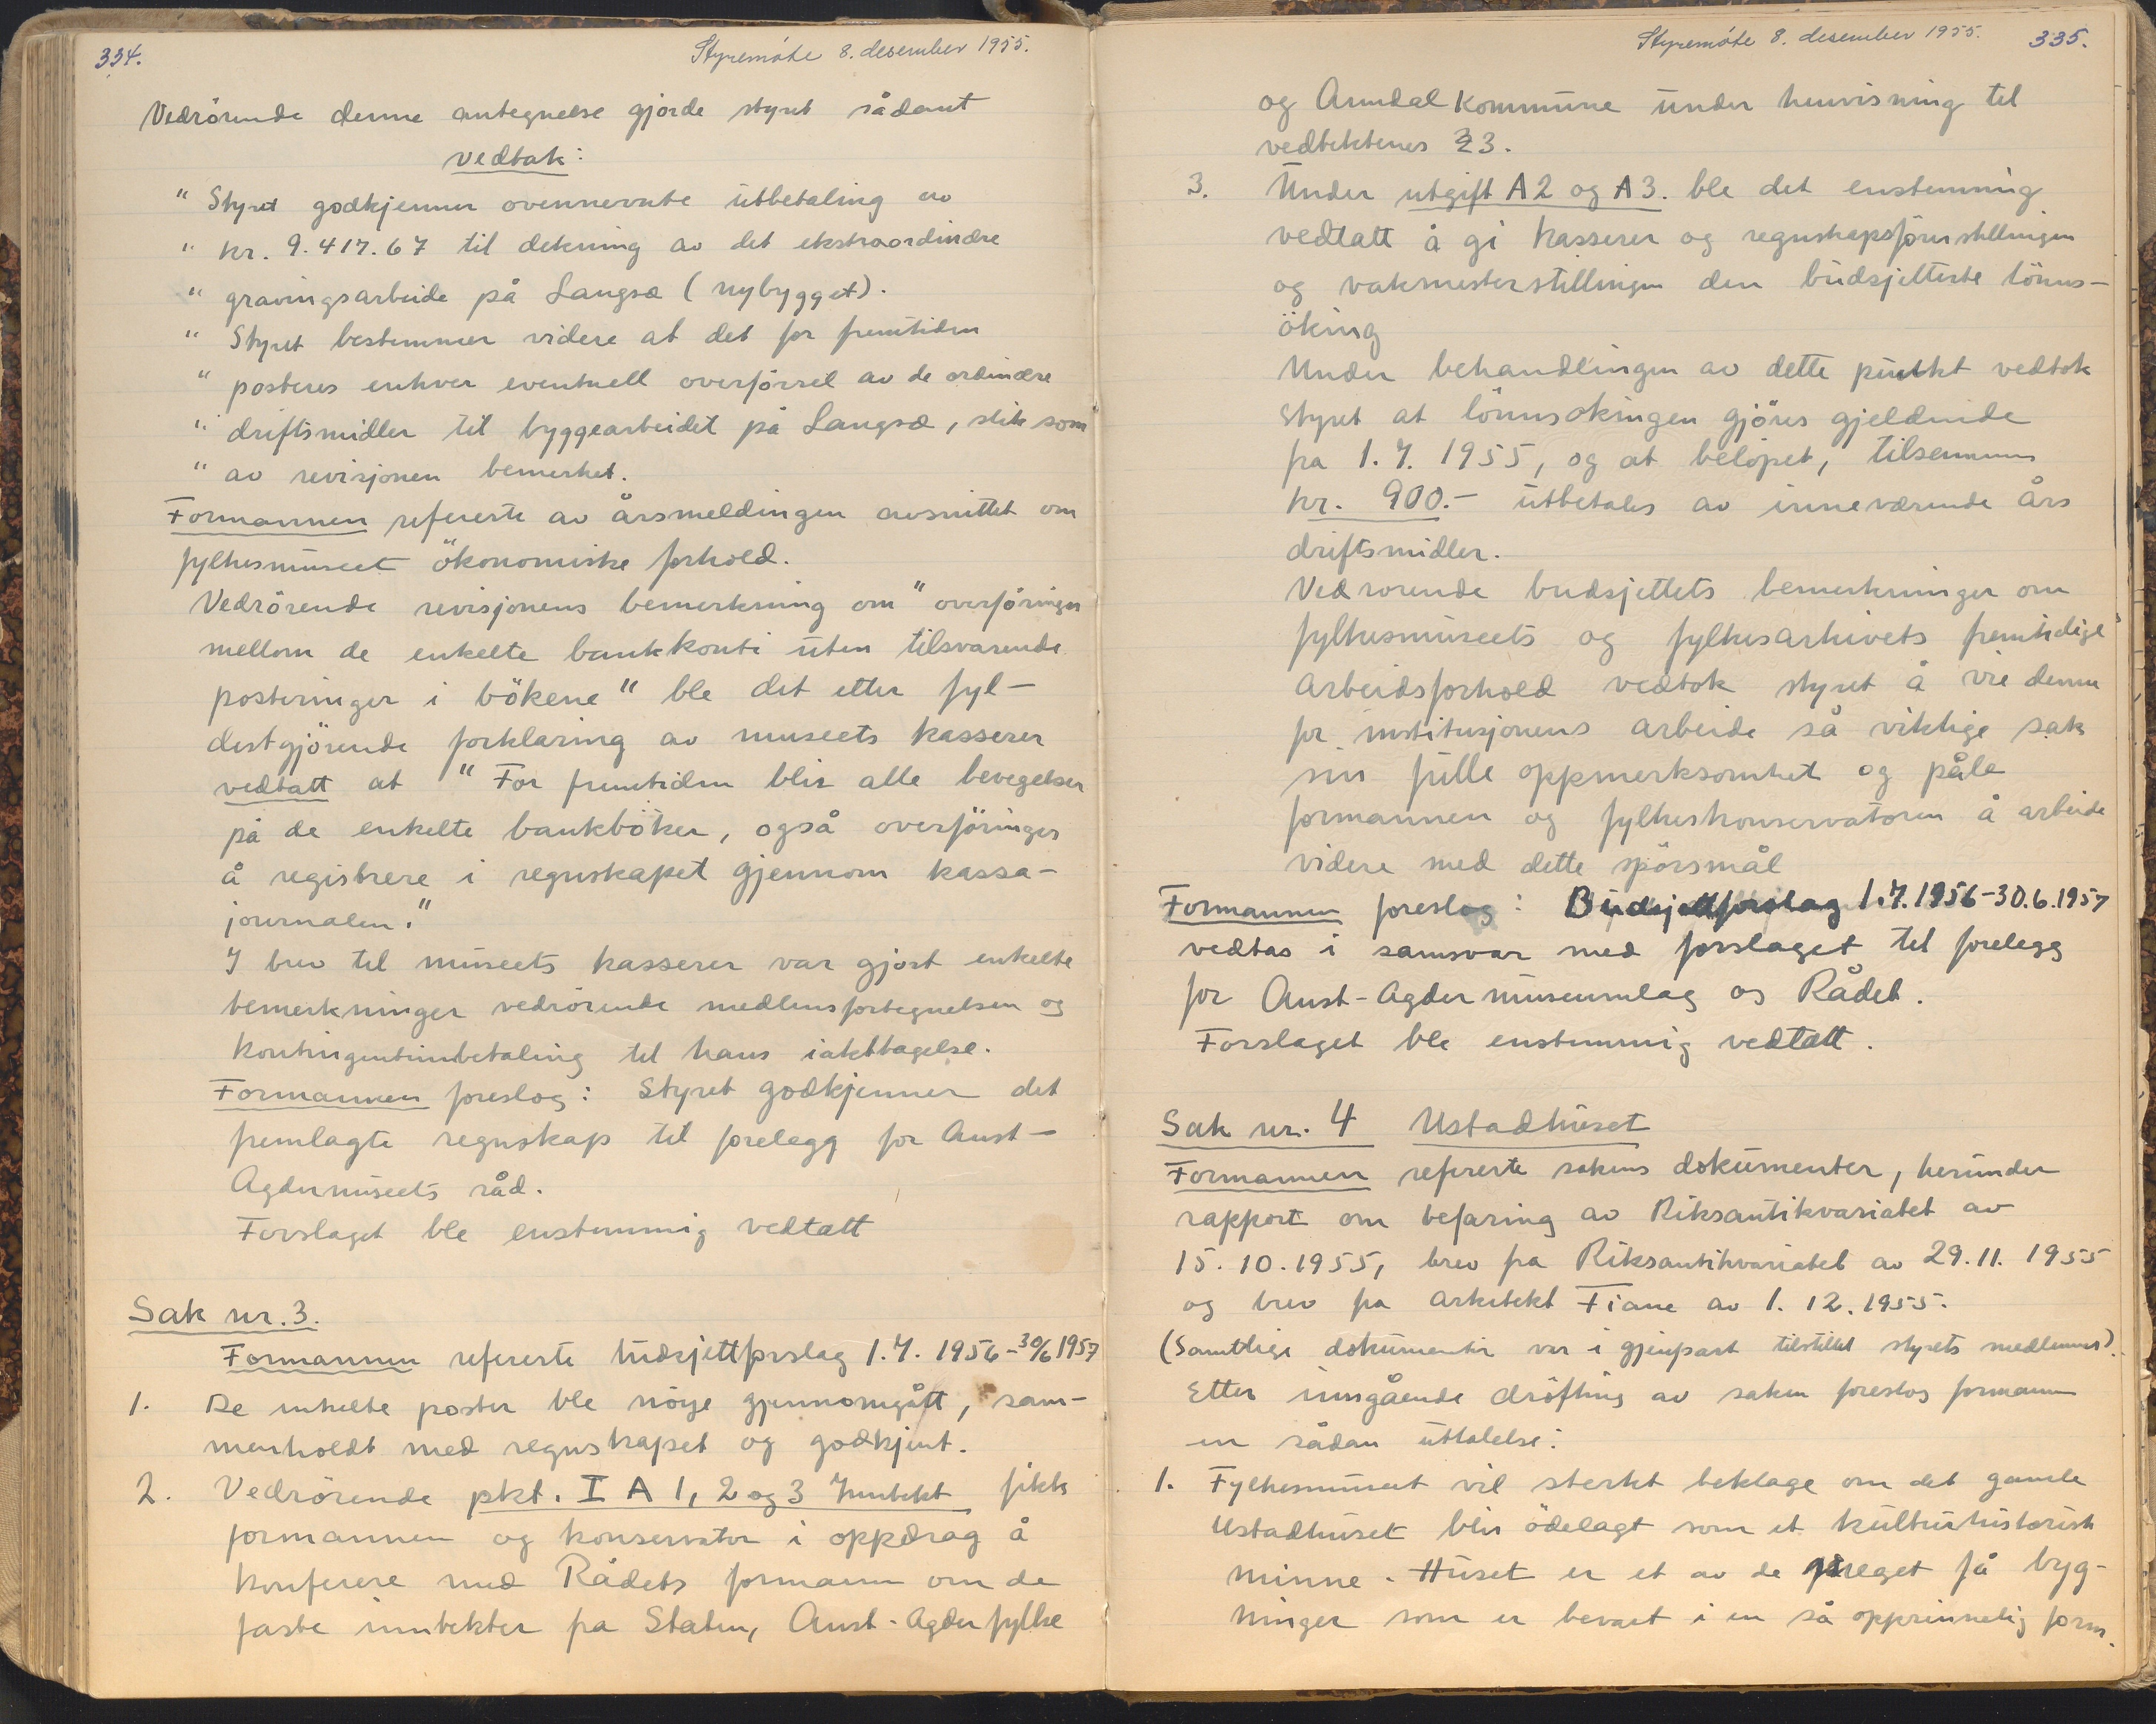 334.
Styremöte 8. desember 1955.
Vedrörende denne antegnelse gjorde styret sådant
vedtak:
" Styret godkjenner ovennevnte utbetaling av
" kr. 9.417.67 til dekning av det ekstraordinære
" gravingsarbeide på Langsæ (nybygget).
" Styret bestemmer videre at det for fremtiden
" posteres enhver eventuell overförsel av de ordinære
" driftsmidler til byggearbeidet på Langsæ, slik som
" av revisjonen bemerket.
Formannen refererte av årsmeldingen avsnittet om
fylkesmuseet ökonomiske forhold.
Vedrörende revisjonens bemerkning om "overföringer
mellom de enkelte bankkonti uten tilsvarende
posteringer i bökene" ble det etter fyl-
destgjörende forklaring av museets kasserer
vedtatt at "For fremtiden blir alle bevegelser
på de enkelte bankböker, også overföringer
å registrere i regnskapet gjennom kassa-
journalen."
I brev til museets kasserer var gjort enkelte
bemerkninger vedrörende medlemsfortegnelsen og
kontingentinnbetaling til hans iakttagelse.
Formannen foreslog: Styret godkjenner det
fremlagte regnskap til forelegg for Aust-
Agdermuseets råd.
Forslaget ble enstemmig vedtatt
Sak nr. 3.
Formannen refererte budsjettforslag 1.7. 1956-30/6 1957
1. De enkelte poster ble nöye gjennomgått, sam-
menholdt med regnskapet og godkjent.
2. Vedrörende pkt. I A 1, 2 og 3 Inntekt fikk
formannen og konservator i oppdrag å
konferere med Rådets formann om de
faste inntekter fra Staten, Aust-Agder fylke
Styremöte 8. desember 1955.
335.
og Arendal kommune under henvisning til
vedtektenes § 3.
3. Under utgift A2 og A3. ble det enstemmig
vedtatt å gi kasserer og regnskapsförerstillingen
og vaktmesterstillingen den budsjetterte lönns-
öking
Under behandlingen av dette punkt vedtok
styret at lönnsökingen gjöres gjeldende
fra 1.7. 1955, og at belöpet, tilsammen
kr. 900.- utbetales av inneværende års
driftsmidler.
Vedrorende budsjettets bemerkninger om
fylkesmuseets og fylkesarkivets fremtidige
arbeidsforhold vedtok styret å vie denne
for institusjonens arbeide så viktige sak
sin fulle oppmerksomhet og påla
formannen og fylkeskonservatoren å arbeide
videre med dette spörsmål
Formannen foreslog: Budsjettforslag 1.7.1956-30.6.1957
vedtas i samsvar med forslaget til forelegg
for Aust-Agder museumslag og Rådet.
Forslaget ble enstemmig vedtatt.
Sak nr. 4 Ustadhuset
Formannen refererte sakens dokumenter, herunder
rapport om befaring av Riksantikvariatet av
15.10.1955, brev fra Riksantikvariatet av 29.11. 1955
og brev fra arkitekt Fiane av 1. 12. 1955.
(Samtlige dokumenter var i gjenpart tilstillet styrets medlemmer).
Etter inngående dröfting av saken foreslog formannen
en sådan uttalelse:
1. Fylkesmuseet vil sterkt beklage om det gamle
Ustadhuset blir ödelagt som et kulturhistorisk
minne. Huset er et av de meget få byg-
ninger som er bevart i en så opprinnelig form.